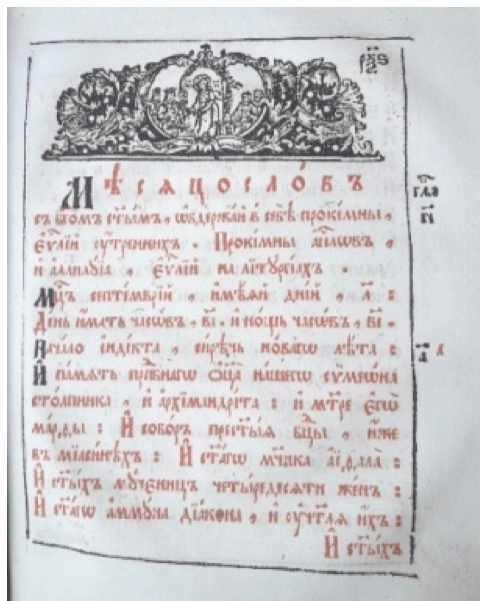 Мѣсѧцосло́въ
съ бг҃омъ ст҃ы́мъ, ѡ҆держа́й в̾ себѣ̀ проки́мны,
є҆ѵⷢ҇лїй ᲂу҆́треннихъ. Проки́мны а҆пⷭ҇лѡвъ,
и҆ а҆ллилꙋ́їа, є҆ѵⷢ҇лїй на лїтꙋргі́ахъ.
Мцⷭ҇ъ септе́мврїй, и҆мѣ́ѧй дні́й, л҃:
Де́нь и҆́мать часѡ́въ, в҃і. и҆ но́щь часѡ́въ, в҃і.
Нача́ло і҆нді́кта, си́рѣчь но́вагѡ лѣ́та:
И҆ па́мѧть прпⷣбнагѡ ѻ҆ц҃а̀ на́шегѡ сѷмеѡ́на
сто́лпника, и҆ а҆рхїмандрі́та: и҆ мт҃ре є҆гѡ̀
ма́рѳы: И҆ собо́ръ прест҃ы́ѧ бцⷣы, и҆́же
въ мїасине́хъ: И҆ ст҃а́гѡ мч҃нка а҆їѳала̀:
И҆ ст҃ы́хъ мꙋ́ченицъ четы́редесѧти же́нъ:
И҆ ст҃а́гѡ а҆ммꙋ́на дїа́кона, и҆ ᲂу҆чт҃лѧ и҆́хъ:
И҆ ст҃ы́хъ